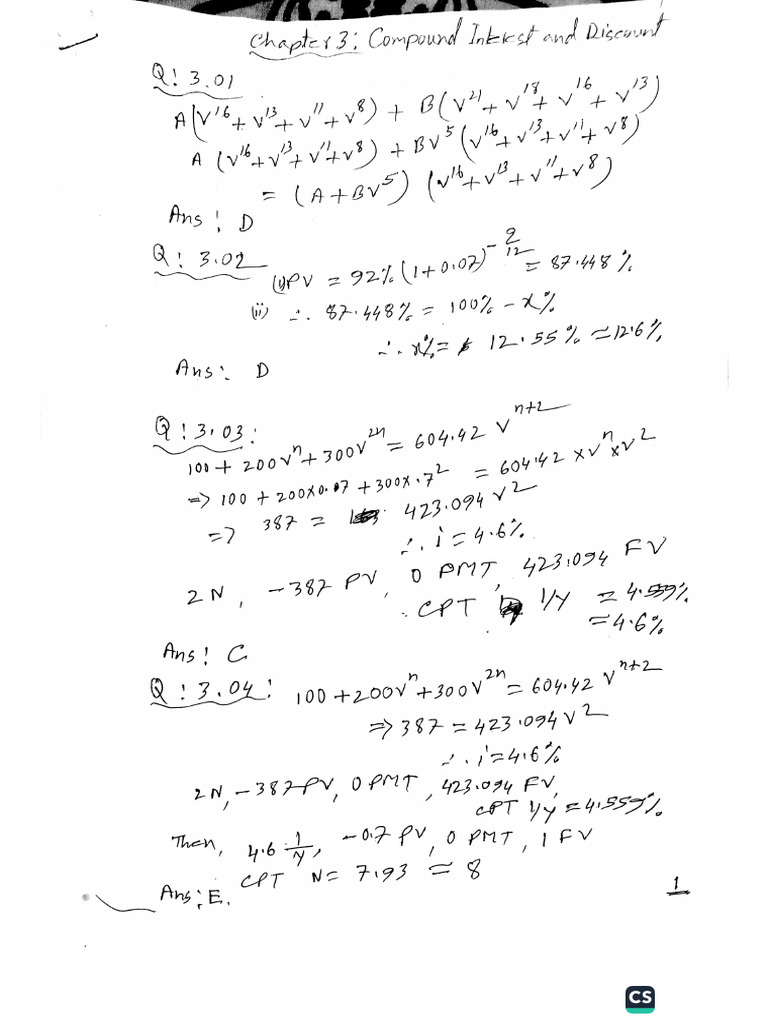 Chapter 3: Compound Interest and Discount
Q: 3.01
A(v^16 + v^13 + v^11 + v^8) + B(v^21 + v^18 + v^16 + v^13)
A (v^16 + v^13 + v^11 + v^8) + Bv^5 (v^16 + v^13 + v^11 + v^8)
= (A + Bv^5) (v^16 + v^13 + v^11 + v^8)
Ans: D
Q: 3.02
(i) PV = 92% (1+0.07)^-9/12 = 87.448%
(ii) ∴ 87.448% = 100% - x%
∴ x% = 12.55% ≈ 12.6%
Ans: D
Q: 3.03:
100 + 200v^n + 300v^2n = 604.42 v^n+2
=> 100 + 200x0.07 + 300x.7^2 = 604.42 x v^n x v^2
=> 387 = 423.094 v^2
∴ i = 4.6%
2N, -387 PV, 0 PMT, 423.094 FV
CPT I/Y = 4.559%
≈ 4.6%
Ans: C
Q: 3.04:
100 + 200v^n + 300v^2n = 604.42 v^n+2
=> 387 = 423.094 v^2
∴ i = 4.6%
2N, -387 PV, 0 PMT, 423.094 FV,
CPT I/Y = 4.559%
Then, 4.6 I/Y, -0.7 PV, 0 PMT, 1 FV
CPT N = 7.93 = 8
Ans: E.
1
CS